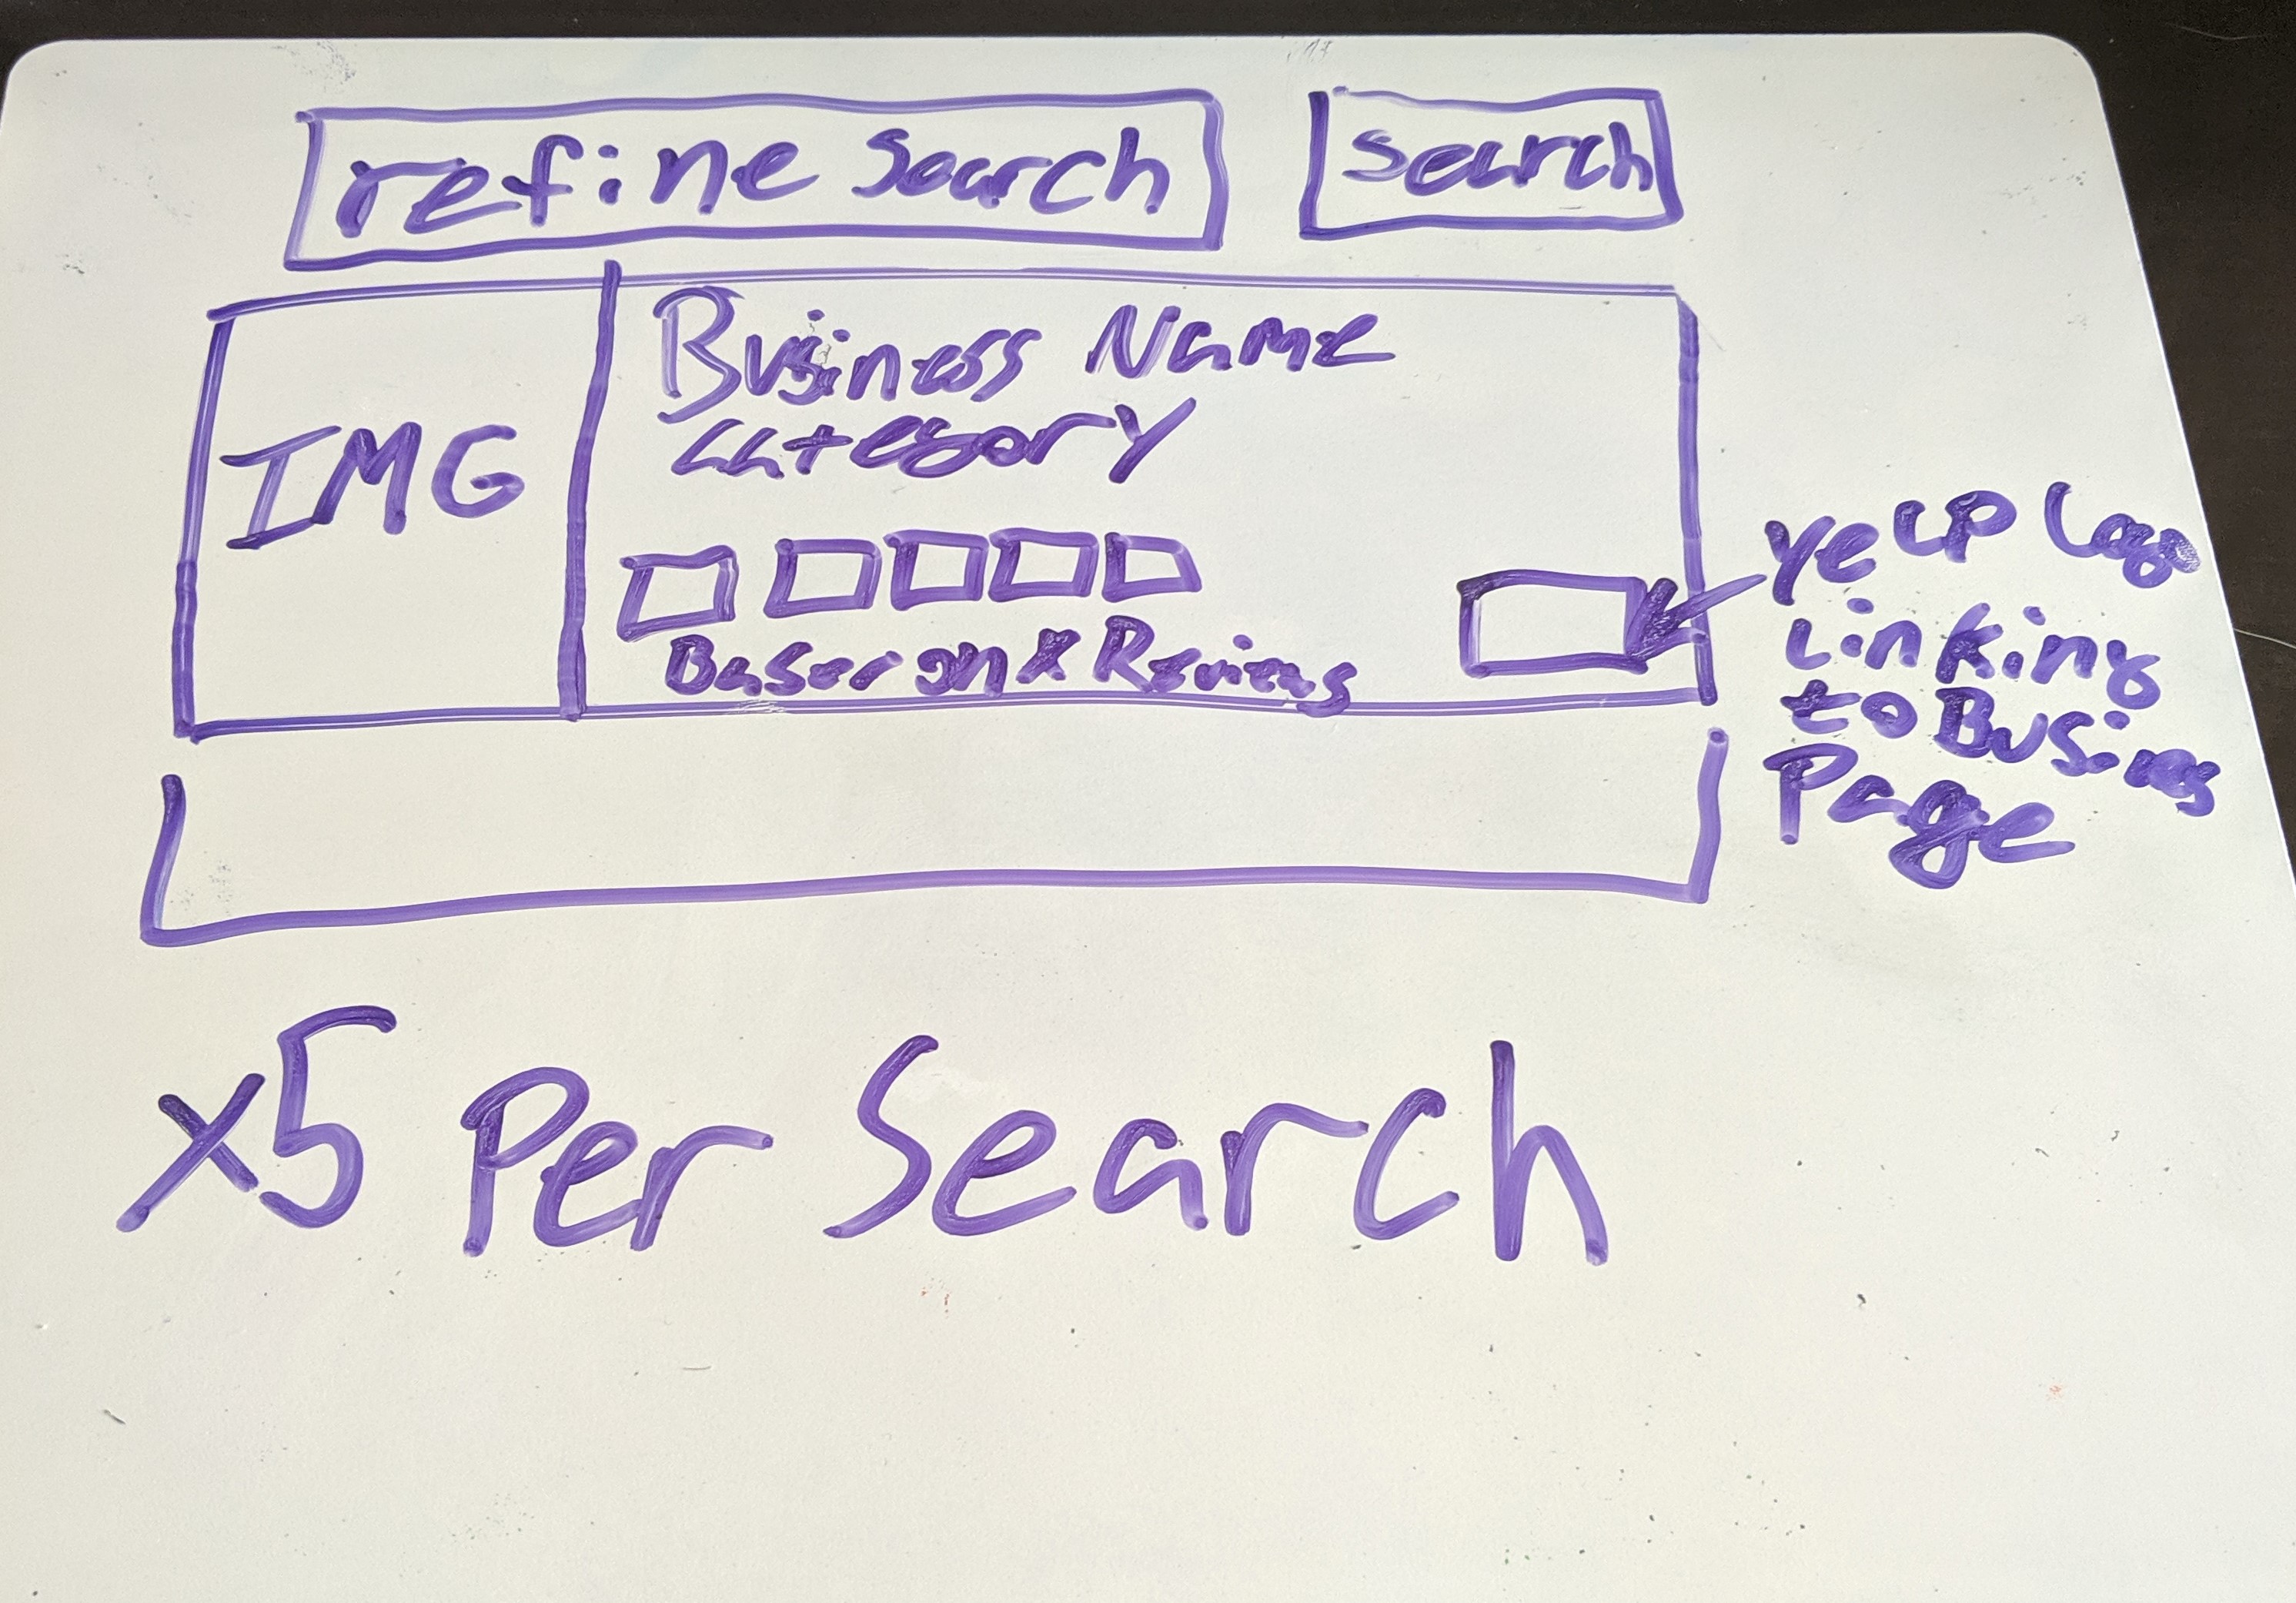 refine search
search
IMG
Business Name
Category
Based on X Reviews
yelp logo
Linking
to Business
Page
x5 Per Search